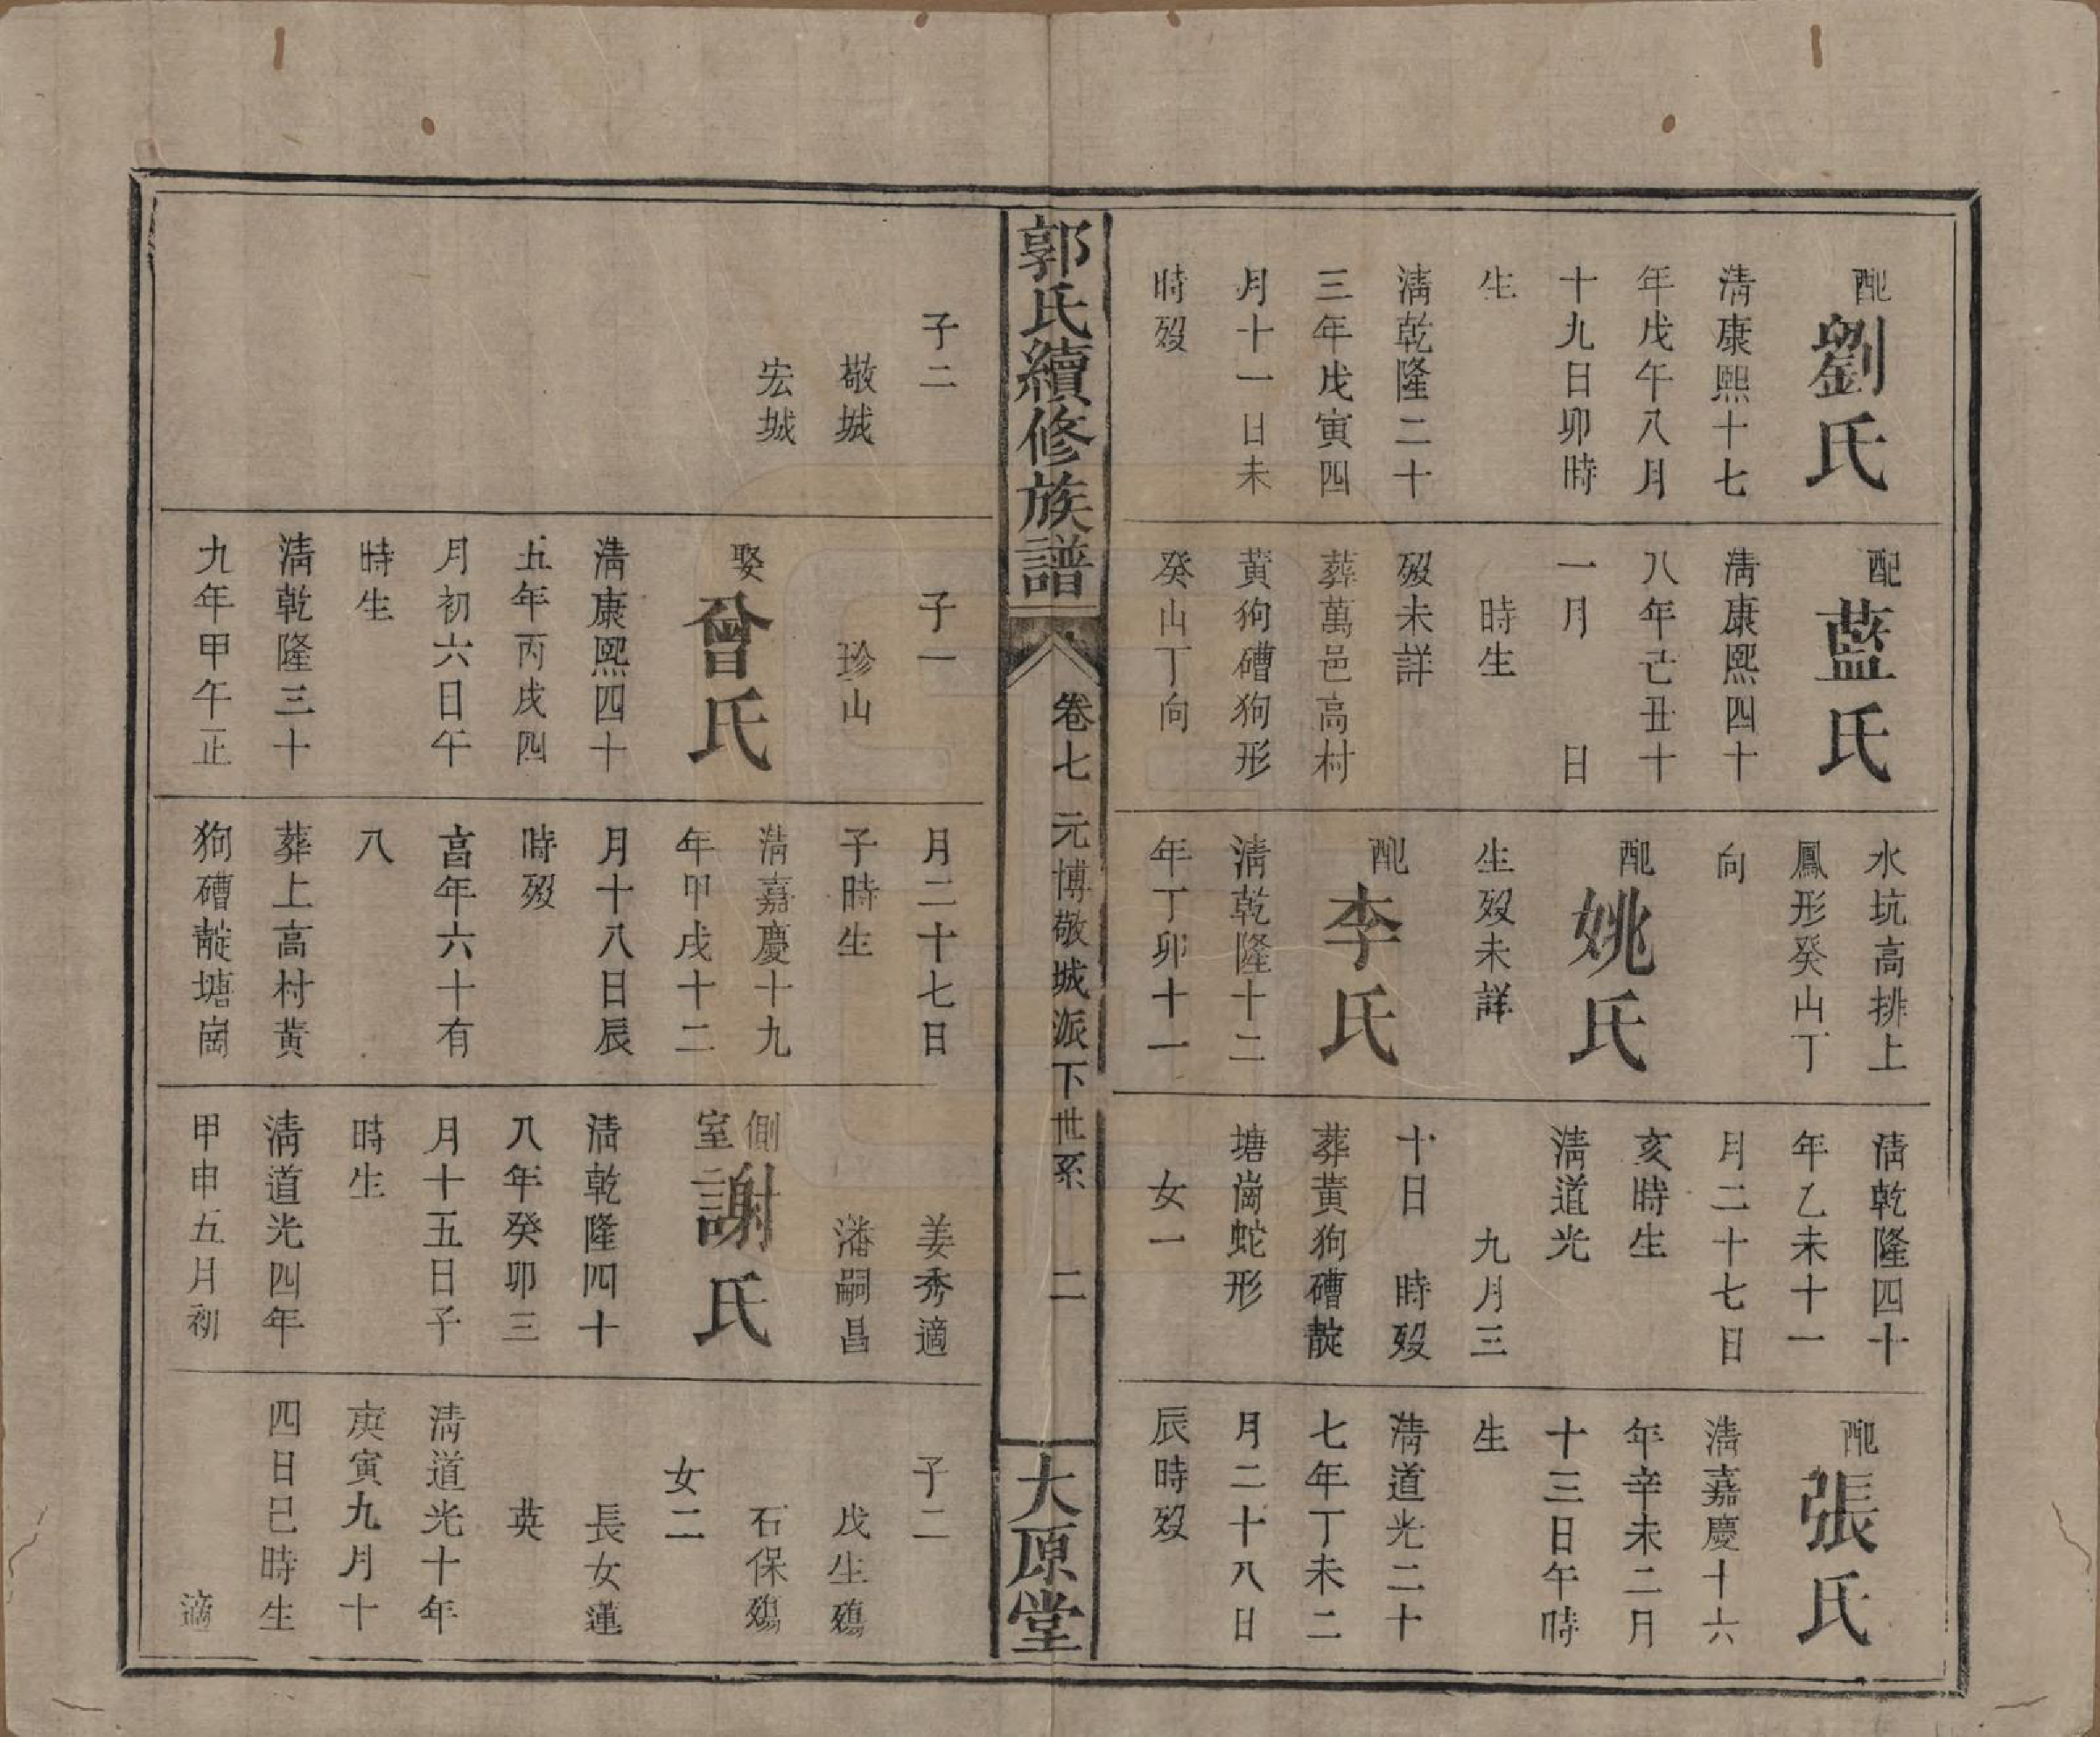 配劉氏
清康熙十七
年戊午八月
十九日卯時
生
清乾隆二十
三年戊寅四
月十一日未
時歿
配藍氏
清康熙四十
八年亡丑十
一月　　日
時生
歿未詳
葬萬邑高村
黃狗磳狗形
癸山丁向
水坑高排上
鳳形癸山丁
向
配姚氏
生歿未詳
配李氏
清乾隆十二
年丁卯十一
清乾隆四十
年乙未十一
月二十七日
亥時生
清道光
九月三
十日　時歿
葬黃狗磳㱩
塘崗蛇形
女一
配張氏
清嘉慶十六
年辛未二月
十三日午時
生
清道光二十
七年丁未二
月二十八日
辰時歿
郭氏續修族譜
卷七　元博敬城派下世系　二
大原堂
子二
敬城
宏城
子一
珍山
娶曾氏
清康熙四十
五年丙戌四
月初六日午
時生
清乾隆三十
九年甲午正
月二十七日
子時生
清嘉慶十九
年甲戌十二
月十八日辰
時歿
亯年六十有
八
葬上高村黃
狗磳㱩塘崗
姜秀適
潘嗣昌
側室謝氏
清乾隆四十
八年癸卯三
月十五日子
時生
清道光四年
甲申五月初
子二
戊生殤
石保殤
女二
長女蓮
英
清道光十年
庚寅九月十
四日巳時生
適